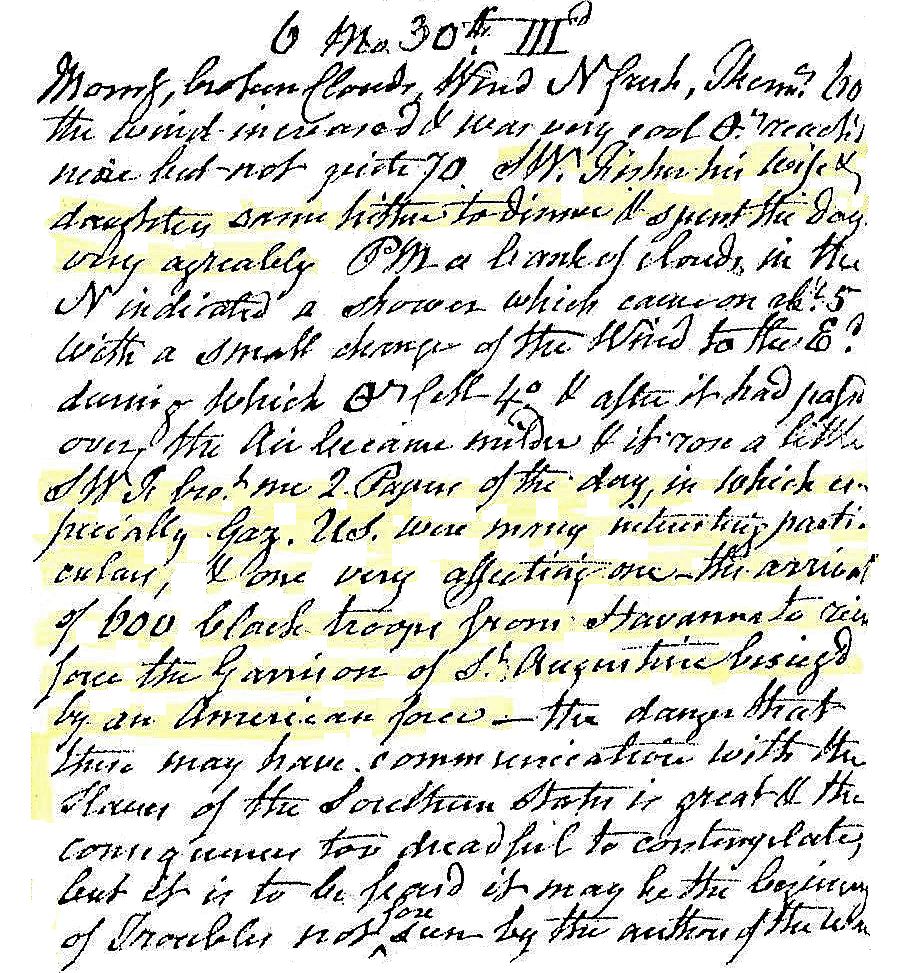 6 Mo. 30th. IIId
Morng, broken Clouds, Wind N fresh, Themr. 60
the wind increased & was very cool
near but not quite 70. SW. Fisher his Wife &
daughter came hither to dinner & spent the Day
very agreably PM a bank of clouds in the
N indicated a shower which came on abt. 5
with a small change of the Wind to the Ed.
during which fell 4° & after it had passd
over, the Air became milder & it rose a little
SW F brot. me 2 Papers of the day, in which es-
pecially Gaz. U.S. were many interesting parti-
culars, & one very affecting one - the arrival
of 600 black troops from Havanna to rein
force the Garrison of St. Augustine besieg'd
by an American force - the danger that
these may have communication with the
Slaves of the Southern States is great & the
consequences too dreadful to contemplate,
but it is to be feard it may be the beginning
of Troubles not foreseen by the authors of the